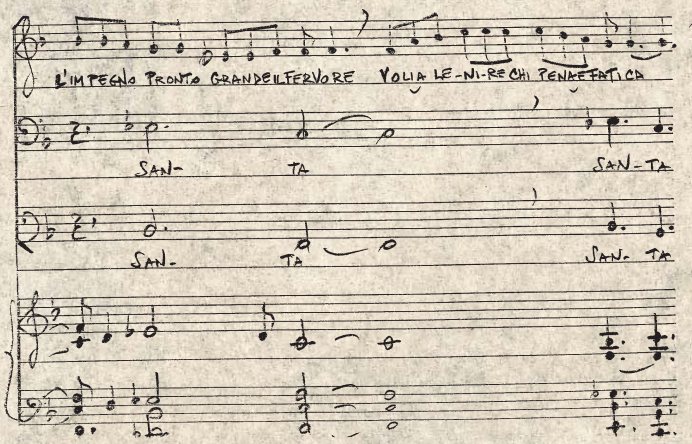 L'IMPEGNO PRONTO GRANDE IL FERVORE VOLIA LE-NI-RE CHI PENA E FATICA
SAN- TA SAN-TA
SAN- TA SAN- TA